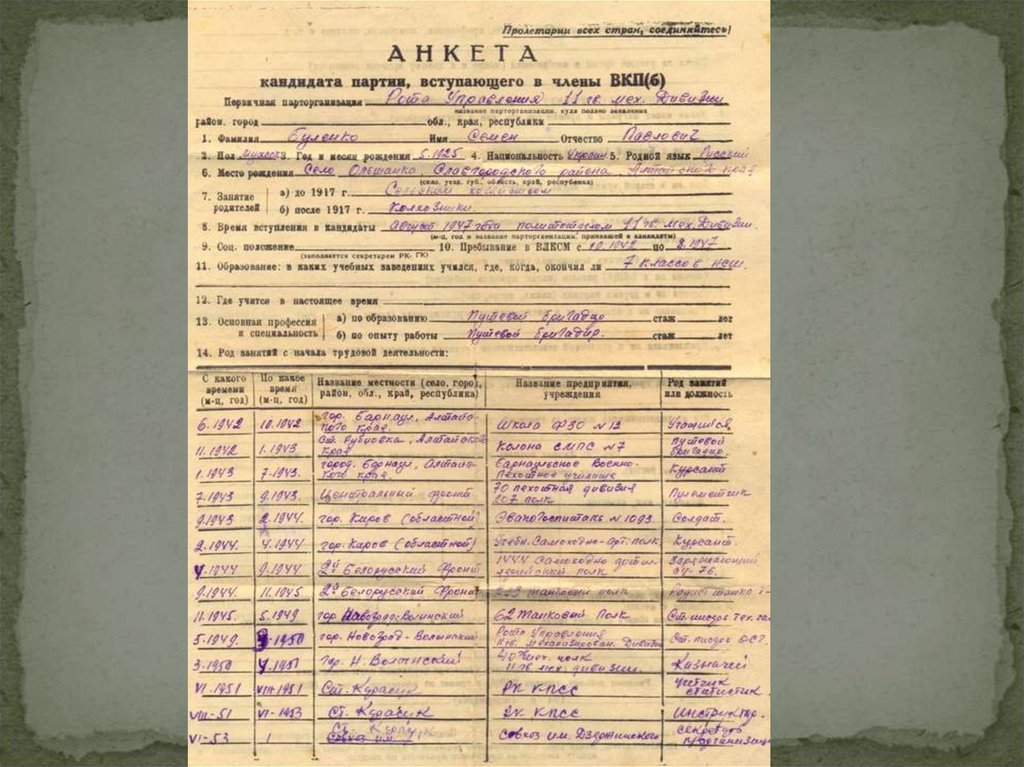 Пролетарии всех стран, соединяйтесь!
АНКЕТА
кандидата партии, вступающего в члены ВКП(б)
Первичная парторганизация Рота Управления 11 гв. мех. Дивизии
название парторганизации, куда подано заявление
район, город обл., края, республики
1. Фамилия Буленко Имя Семен Отчество Павлович
2. Пол мужск 3. Год и месяц рождения 5.1925 4. Национальность Украин 5. Родной язык Русский
6. Место рождения Село Ольшанка, Славгородского района Алтайского края
(село, уезд, губ., область, край, республика)
7. Занятие родителей а) до 1917 г.
б) после 1917 г. Колхозники
8. Время вступления в кандидаты Август 1947 года политотделом 11 гв. мех. Дивизии.
(м-ц, год и название парторганизации, принявшей в кандидаты)
9. Соц. положение 10. Пребывание в ВЛКСМ с 10.1942 по 8.1947
(заполняется секретарем РК-ГК)
11. Образование: в каких учебных заведениях учился, где, когда, окончил ли 7 классов нсш.
12. Где учится в настоящее время
13. Основная профессия и специальность а) по образованию Путевой бригадир стаж лет
б) по опыту работы Путевой бригадир. стаж лет
14. Род занятий с начала трудовой деятельности:
С какого времени (м-ц, год) По какое время (м-ц, год) Название местности (село, город, район, обл., край, республика) Название предприятия, учреждения Род занятий или должность
6.1942 10.1942 гор. Барнаул, Алтайского края. Школа ФЗО №12 Учащийся
11.1942 1.1943 ст. Рубцовка, Алтайского края Колона СМПС №7 Путевой бригадир.
1.1943 7.1943 город. Барнаул, Алтайского края. Барнаульское Военно-Пехотное училище Курсант
7.1943 9.1943 Центральный фронт 70 пехотная дивизия 207 полк Пулеметчик
9.1943 2.1944 гор. Киров (областной) Эвакогоспиталь №1093 Солдат.
2.1944. 4.1944 гор. Киров (областной) Учебн. Самоходно-арт. полк Курсант.
4.1944 9.1944 2й Белорусский Фронт 1444 Самоходно артиллерийский полк Заряжающий СУ-76.
9.1944. 11.1945 2й Белорусский Фронт танковый полк
11.1945. 5.1949 гор. Новоград-Волынский 62 Танковый Полк Ст. писарь тех. части
5.1949. 3.1950 гор. Новоград-Волынский Рота Управления 11 гв. механизирован. Дивизии Ст. писарь
3.1950 4.1951 Гор. Н. Волынский мех. полк 11 гв мех. дивизии. Казначей
VI.1951 VIII.1951 Ст. Кулунда РК КПСС Учетчик статистик
VIII-51 VI-1953 ст. РК КПСС Инструктор.
VI-53 Ст. совхоз им. Дзержинского секретарь парторганизации